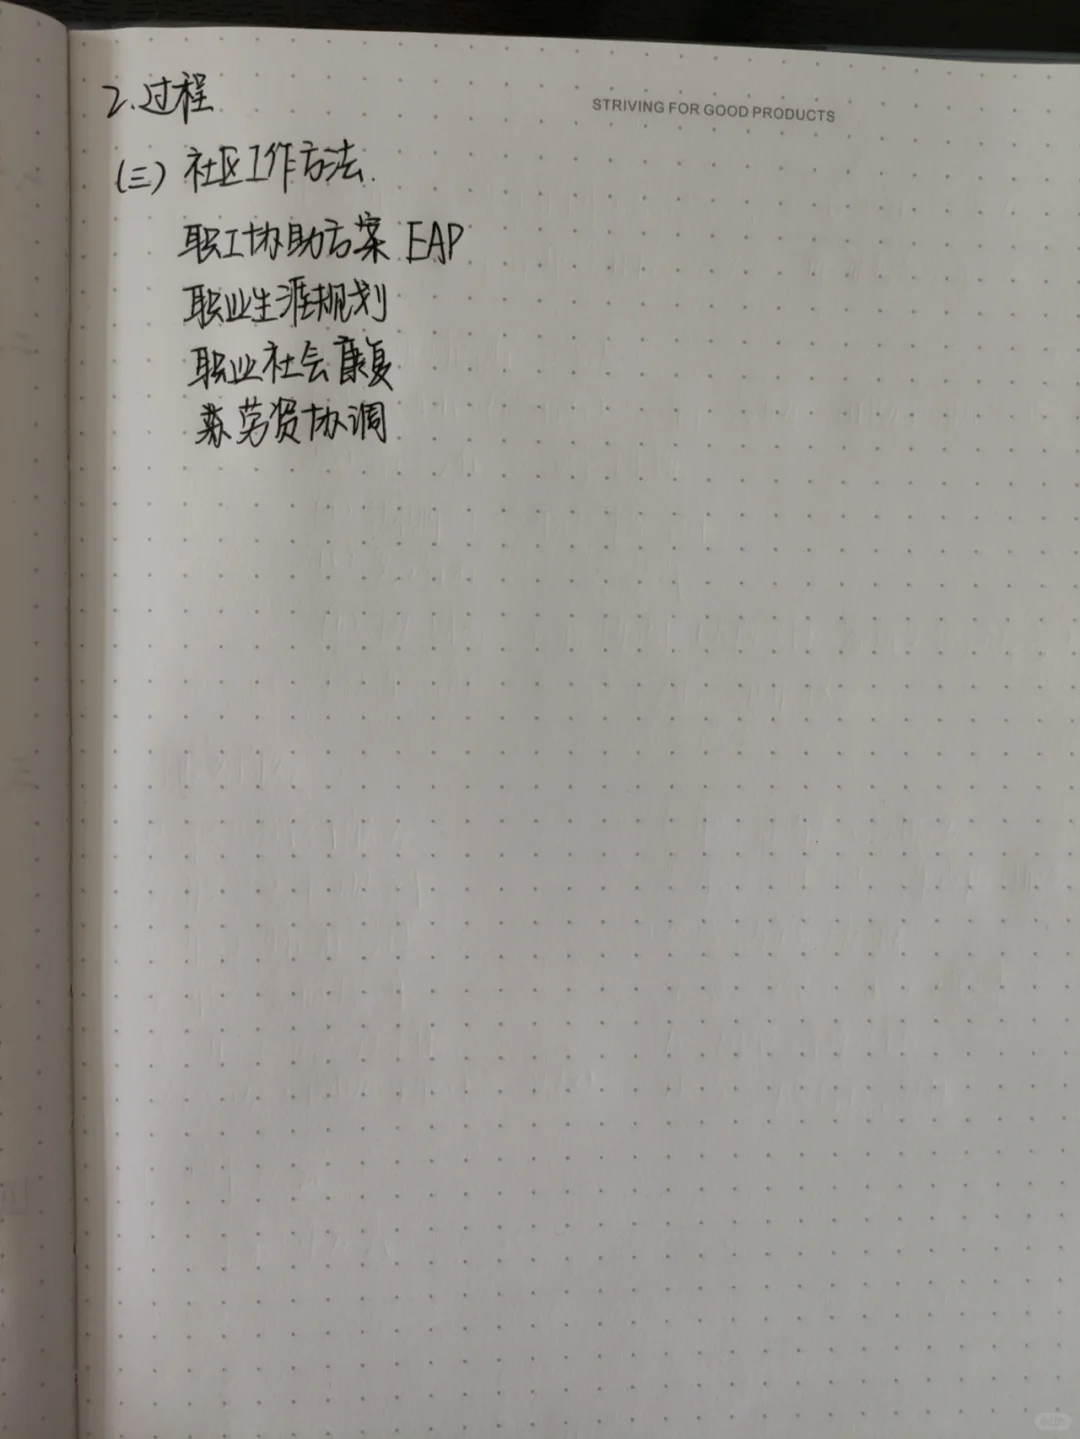 STRIVING FOR GOOD PRODUCTS
2.过程
(三)社区工作方法.
职工协助方案 EAP
职业生涯规划
职业社会康复
劳资协调